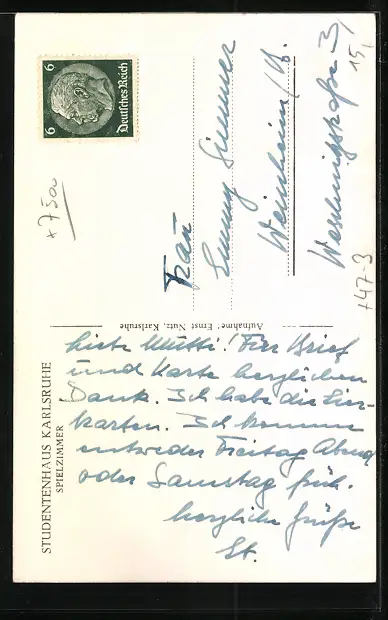 STUDENTENHAUS KARLSRUHE
SPIELZIMMER
Liebe Mutti! Für Brief
und Karte herzlichen
Dank. Ich habe die
karten. Ich komme
entweder Freitag Abend
oder Samstag früh.
herzliche Grüße
St.
Aufnahme: Ernst Nutz, Karlsruhe
Deutsches Reich
6 6
Frau
Simmer
Weinheim / B.
+47-3